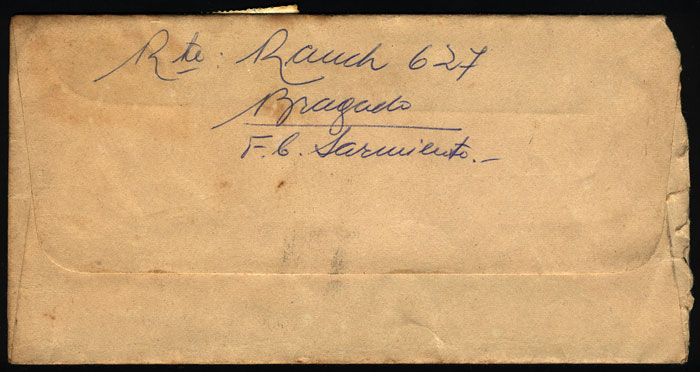 Rte: Rauch 627
Bragado
F.C. Sarmiento.-